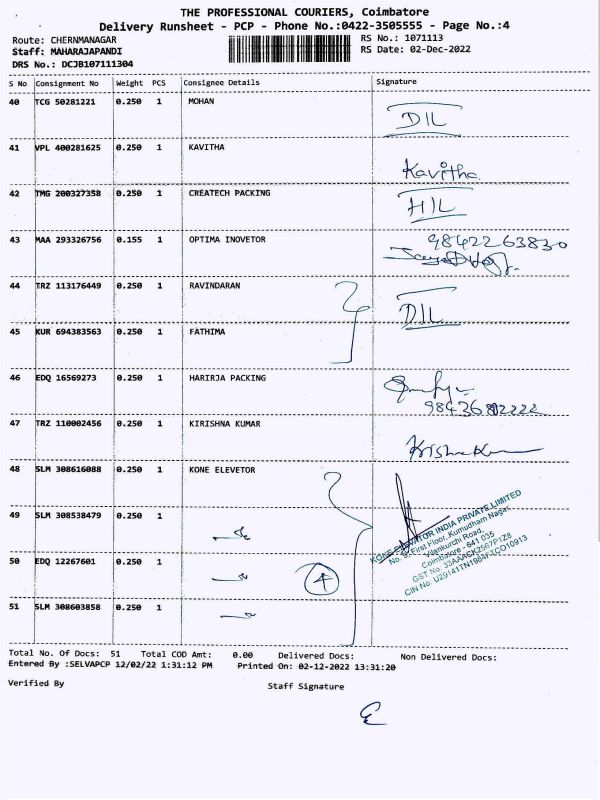 THE PROFESSIONAL COURIERS, Coimbatore
Delivery Runsheet - PCP - Phone No.:0422-3505555 - Page No.:4
Route: CHERNMANAGAR RS No.: 1071113
Staff: MAHARAJAPANDI RS Date: 02-Dec-2022
DRS No.: DCJB107111304
S No Consignment No Weight PCS Consignee Details Signature
40 TCG 50281221 0.250 1 MOHAN
DIL
41 VPL 400281625 0.250 1 KAVITHA
Kavitha
42 TMG 200327358 0.250 1 CREATECH PACKING
HIL
43 MAA 293326756 0.155 1 OPTIMA INOVETOR
9842263830
44 TRZ 113176449 0.250 1 RAVINDARAN
DIL
45 KUR 694383563 0.250 1 FATHIMA
46 EDQ 16569273 0.250 1 HARIRJA PACKING
47 TRZ 110002456 0.250 1 KIRISHNA KUMAR
48 SLM 308616088 0.250 1 KONE ELEVETOR
49 SLM 308538479 0.250 1
50 EDQ 12267601 0.250 1
4
51 SLM 308603858 0.250 1
KONE ELEVATOR INDIA PRIVATE LIMITED
First Floor, Kumudham Nagar,
Vilankurichi Road,
Coimbatore - 641 035
GST No. 33AAACK2567P1Z8
CIN No. U29141TN1984FTCO10913
Total No. Of Docs: 51 Total COD Amt: 0.00 Delivered Docs: Non Delivered Docs:
Entered By :SELVAPCP 12/02/22 1:31:12 PM Printed On: 02-12-2022 13:31:20
Verified By Staff Signature